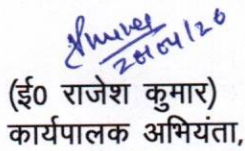 20/04/20
(ई० राजेश कुमार)
कार्यपालक अभियंता,